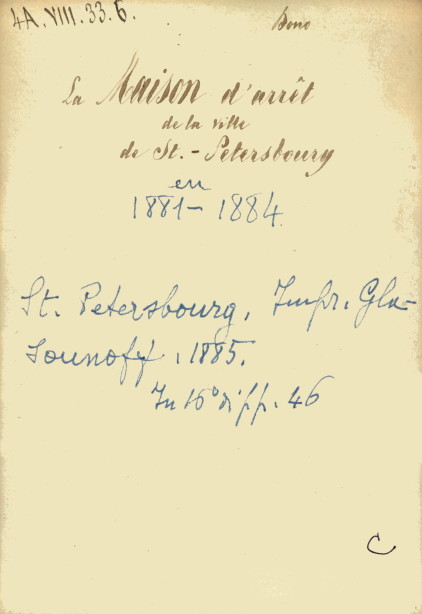 4A.VIII.33.6.
Dono
La Maison d'arrêt
de la ville
de St.-Pétersbourg
en
1881-1884
St. Petersbourg, Impr. Gla-
sounoff, 1885.
In 16° di pp. 46
C